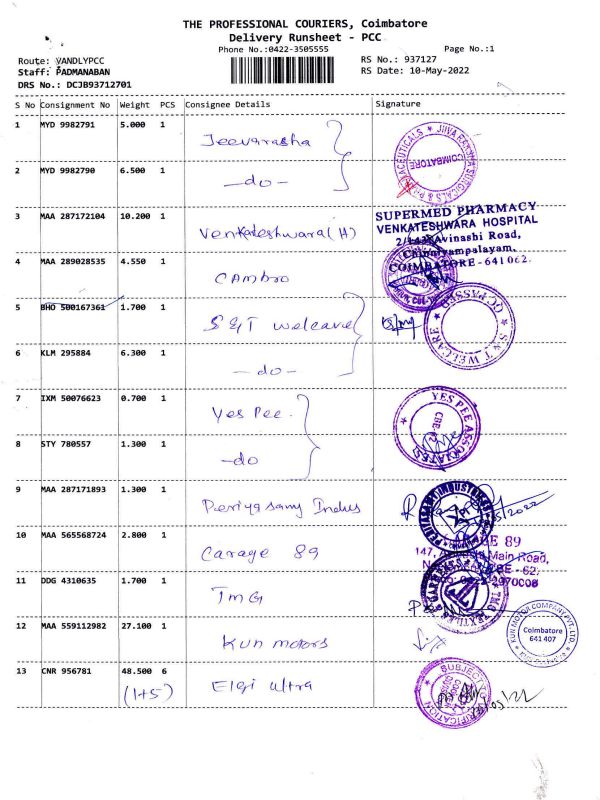 THE PROFESSIONAL COURIERS, Coimbatore
Delivery Runsheet - PCC
Phone No.:0422-3505555
Page No.:1
Route: VANDLYPCC
RS No.: 937127
Staff: PADMANABAN
RS Date: 10-May-2022
DRS No.: DCJB93712701
S No Consignment No Weight PCS Consignee Details Signature
1 MYD 9982791 5.000 1 Jeevarasha
JIVA RAKSHA SURGICALS & COIMBATORE
2 MYD 9982790 6.500 1 -do-
3 MAA 287172104 10.200 1 Venkateshwara (H)
SUPERMED PHARMACY
VENKATESHWARA HOSPITAL
Avinashi Road,
Chinniyampalayam,
COIMBATORE - 641 062.
4 MAA 289028535 4.550 1 CAmbro
5 BHO 500167361 1.700 1 S&T welcare
S.N.T WELCARE
QC PASSED
6 KLM 295884 6.300 1 -do-
7 IXM 50076623 0.700 1 Yes Pee.
YES PEE ASSOCIATES
8 STY 780557 1.300 1 -do
9 MAA 287171893 1.300 1 Periyasamy Indus
10 MAA 565568724 2.800 1 Carage 89
89
147, Main Road,
11 DDG 4310635 1.700 1 TMG
12 MAA 559112982 27.100 1 Kun motors
KUN MOTOR COMPANY PVT. LTD.
Coimbatore
641 407
13 CNR 956781 48.500 6 Elgi ultra
(1+5)
SUBJECT TO VERIFICATION